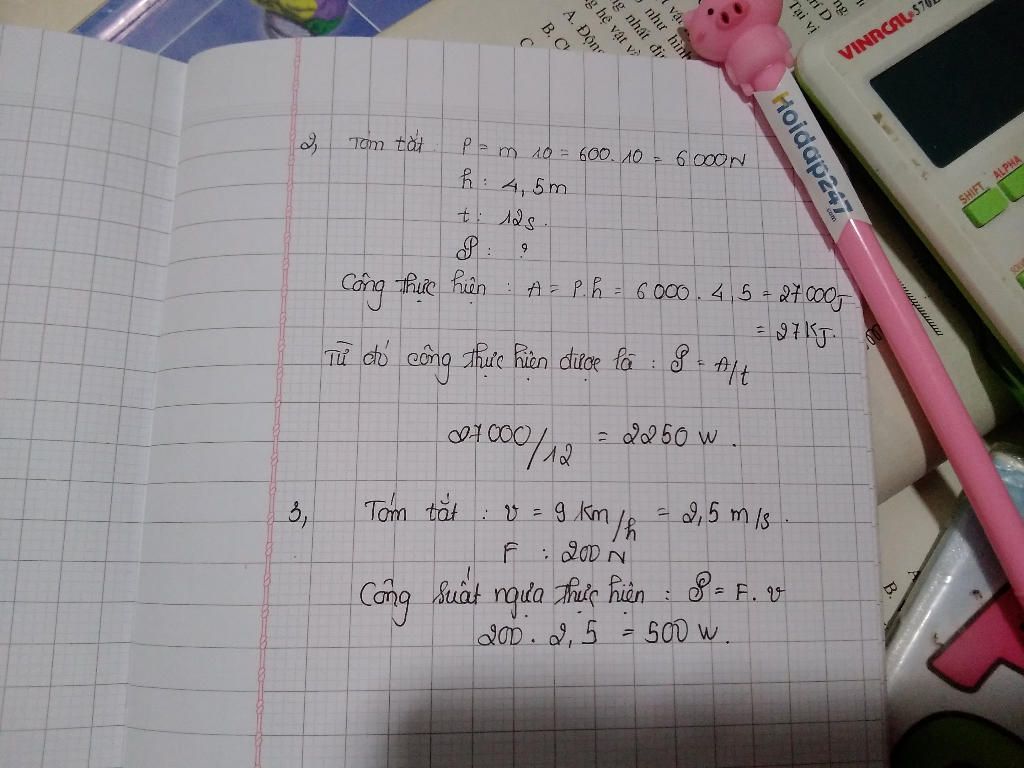 2, Tóm tắt: P = m 10 = 600.10 = 6000N
h: 4,5m
t: 12s.
𝒫: ?
Công thực hiện: A = P.h = 6000.4,5 = 27000J
= 27KJ.
Từ đó công thực hiện được là: 𝒫 = A/t
27000/12 = 2250 W.
3, Tóm tắt: v = 9 km/h = 2,5 m/s.
F: 200N
Công suất ngựa thực hiện: 𝒫 = F.v
200.2,5 = 500 W.
Hoidap247
.com
VINACAL
SHIFT
ALPHA
A.
B.